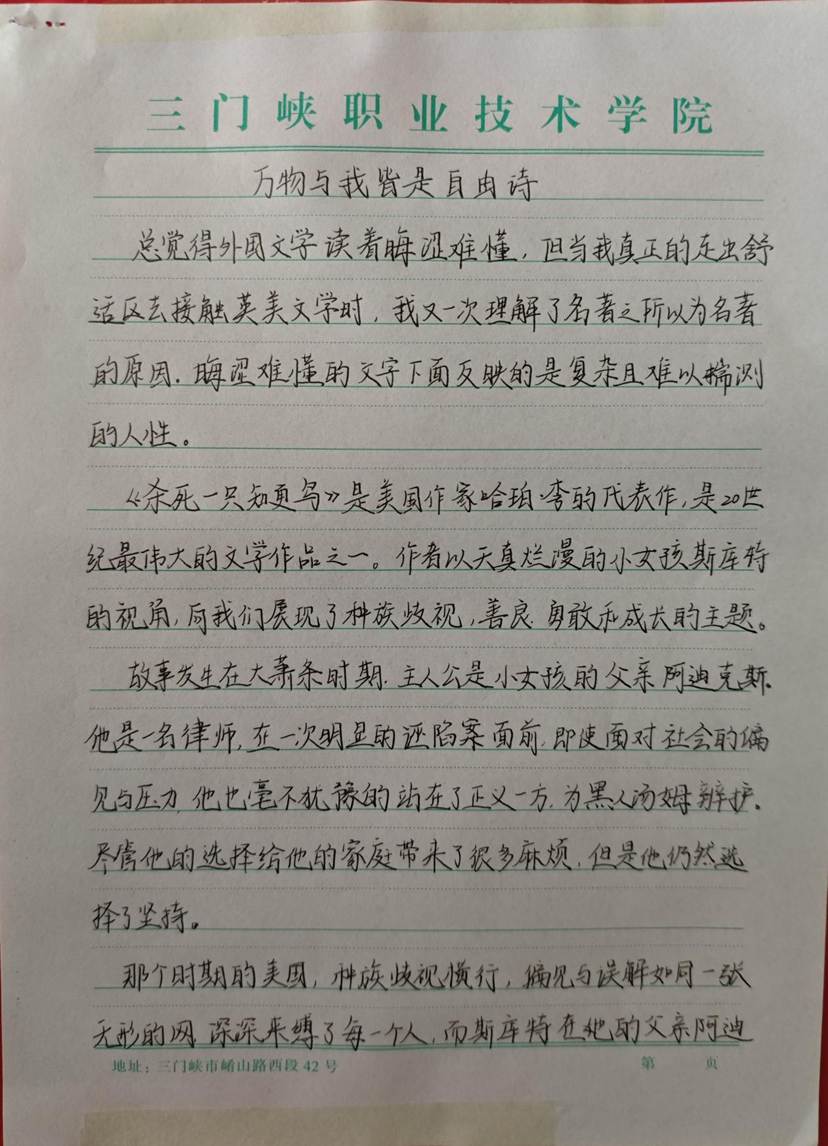 三门峡职业技术学院
万物与我皆是自由诗
总觉得外国文学读着晦涩难懂，但当我真正的走出舒
适区去接触英美文学时，我又一次理解了名著之所以为名著
的原因.晦涩难懂的文字下面反映的是复杂且难以揣测
的人性。
《杀死一只知更鸟》是美国作家哈珀·李的代表作，是20世
纪最伟大的文学作品之一。作者以天真烂漫的小女孩斯库特
的视角，向我们展现了种族歧视，善良.勇敢和成长的主题。
故事发生在大萧条时期.主人公是小女孩的父亲阿迪克斯.
他是一名律师,在一次明显的诬陷案面前.即使面对社会的偏
见与压力,他也毫不犹豫的站在了正义一方.为黑人汤姆辩护.
尽管他的选择给他的家庭带来了很多麻烦，但是他仍然选
择了坚持。
那个时期的美国，种族歧视横行，偏见与误解如同一张
无形的网.深深束缚了每一个人,而斯库特在她的父亲阿迪
地址：三门峡市崤山路西段42号
第 页